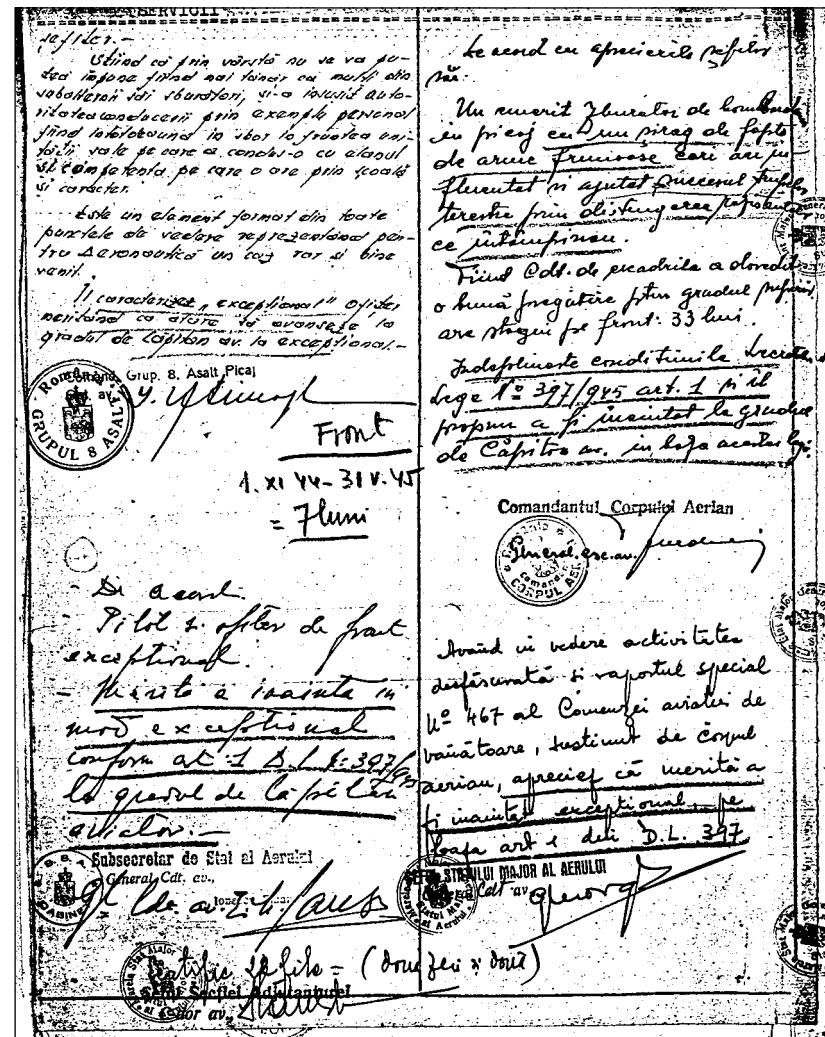 SERVICII
sefilor.-
Știind că prin vârstă nu se va pu-
tea impune fiind mai tânăr ca mulți din
subalternii săi sburători, și-a însușit auto-
ritatea conducerii prin exemplu personal
fiind întotdeauna în sbor în fruntea uni-
tății sale pe care a condus-o cu elanul
și competența pe care o are prin școală
și caracter.
Este un element format din toate
punctele de vedere reprezentând pen-
tru Aeronautică un caz rar și bine
venit.
Îl caracterizez „excepțional" ofițer
meritând ca atare să avanseze la
gradul de Căpitan av. la excepțional.-
Comand. Grup. 8. Asalt Picaj
av.
România
GRUPUL 8 ASALT
Front
1. XI 44 - 31 V. 45
= 7 luni
- De acord.
- Pilot și ofițer de front
excepțional.
- Merită a inainta in
mod excepțional
conform art. 1 D.L. 397/945
la gradul de Căpitan
aviator.-
Subsecretar de Stat al Aerului
General Cdt. av.,
CABINET
De acord cu aprecierile șefilor
săi.
Un emerit zburator de bombard.
in picaj cu un șirag de fapte
de arme frumoase care au in-
fluentat și ajutat succesul trupelor
terestre prin distrugerea rezistentelor
ce intâmpinau.
Fiind Cdt. de escadrila a dovedit
o bună pregătire pentru gradul superior,
are stagiu pe front: 33 luni.
Indeplineste conditiunile Decretului
Lege No 397/945 art. 1 și il
propun a fi inaintat la gradul
de Căpitan av. in baza acestei legi.
Comandantul Corpului Aerian
General esc. av.
CORPUL AER.
Având in vedere activitatea
desfășurată și raportul special
No 467 al Comenzei aviatiei de
vânătoare, sustinut de corpul
aerian, apreciez că merită a
fi inaintat exceptional, pe
baza art 1 din D.L. 397
STATULUI MAJOR AL AERULUI
Cdt av
Certific 22 file = (două zeci și două)
Șeful Secției Adjutanturei
av.